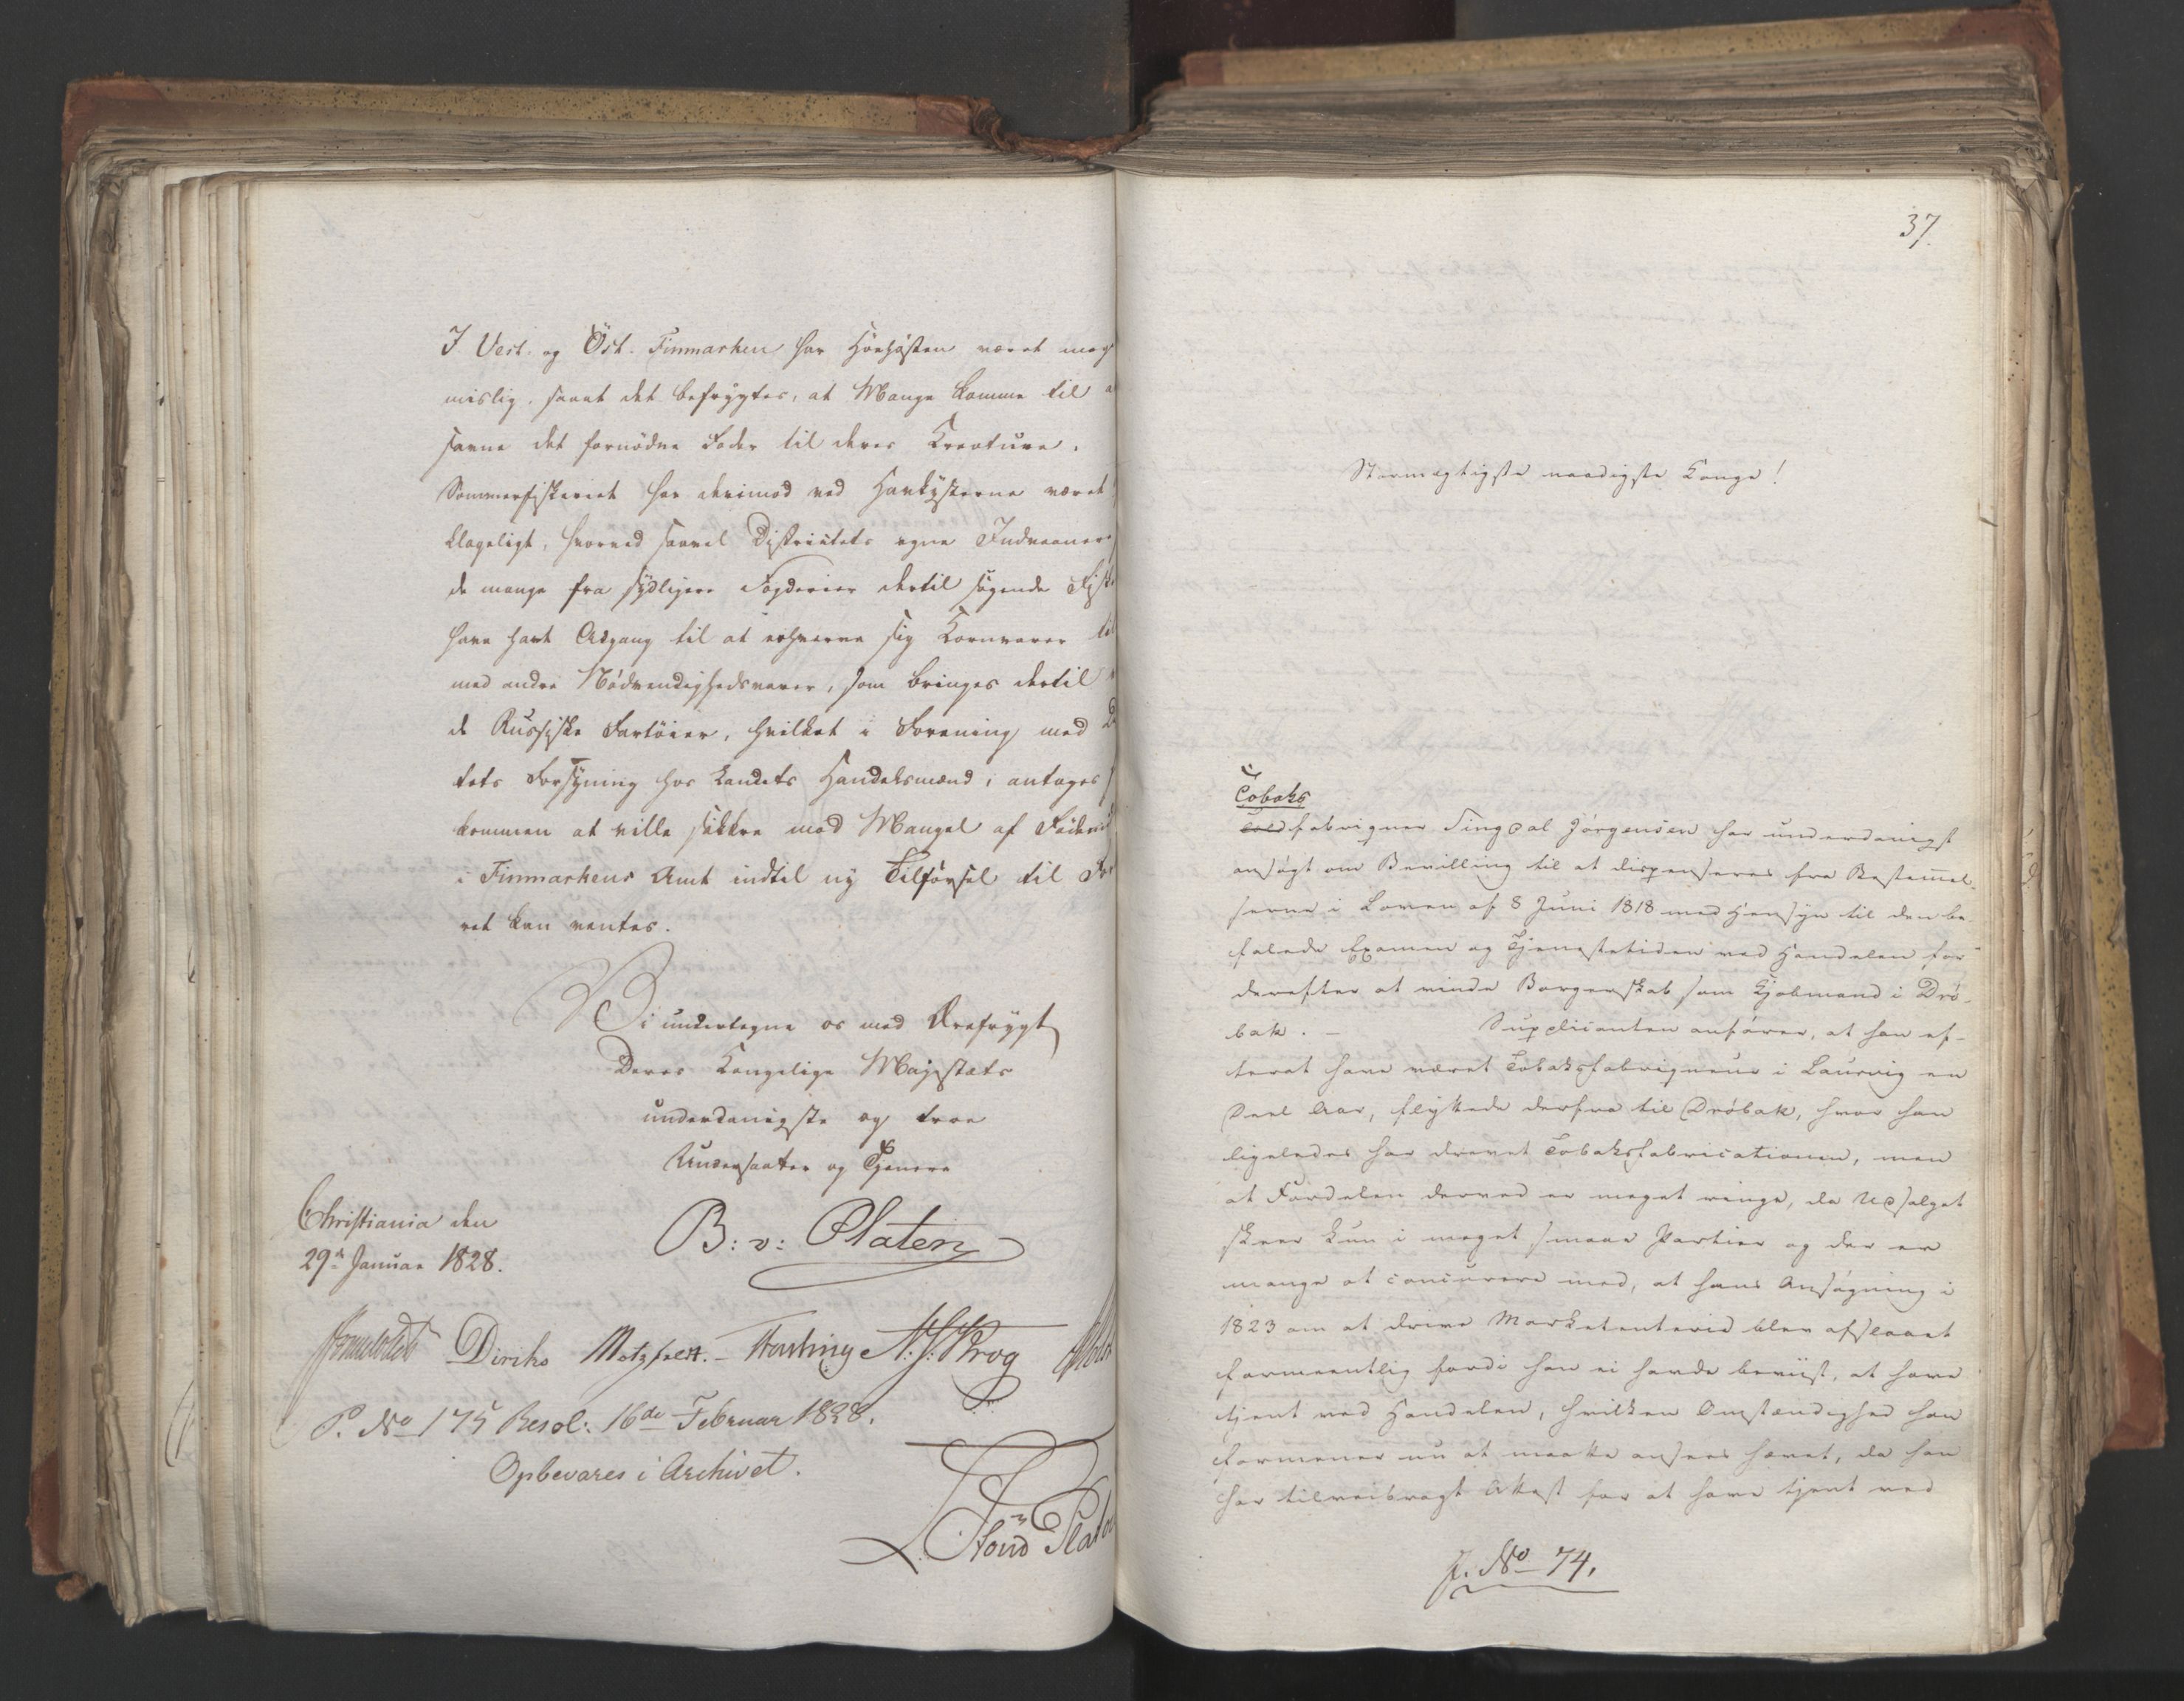 I Vest- og Öst-Finmarken har Höehösten været meget
mislig, saaat det befrygtes, at Mange komme til
savne det fornödne Foder til deres Kreature.
Sommerfiskeriet har derimod ved Havkysterne været
klageligt, hvorved saavel Districtets egne Indvaanere
de mange fra sydligere Fogderier dertil sögende Fisk
have havt Adgang til at erhverve sig Kornvarer til
med andre Nödvendighedsvarer, som bringes dertil
de Russiske Fartöier, hvilket i Forening med
tets Forsyning hos Landets Handelsmænd, antages
kommen at ville sikkre mod Mangel af Födemid
i Finmarkens Amt indtil ny Tilförsel til For
ret kan ventes.
Vi undertegne os med Ærefrygt
Deres Kongelige Majestæts
underdanigste og troe
Undersaatter og Tjenere
Christiania den
29de Januar 1828.
B: v: Platen
Diriks Motzfeldt. Fasting A. S. Krog
P. No 175 Resol: 16de Februar 1828.
Opbevares i Archivet.
37.
Stormægtigste naadigste Konge!
Tobaks
fabriqueur Jörgensen har underdanigst
ansögt om Bevilling til at dispenseres fra Bestemmel-
serne i Loven af 8 Juni 1818 med Hensyn til den be-
falede Examen og Tjenestetiden ved Handelen for
derefter at vinde Borgerskab som Kjöbmand i Drö-
bak. – Supplicanten anförer, at han ef-
terat have været Tobaksfabriqueur i Laurvig en
Deel Aar, flyttede derfra til Dröbak, hvor han
ligeledes har drevet Tobaksfabricationen, men
at Fordelen derved er meget ringe, da Udsalget
skeer kun i meget smaae Partier og der er
mange at concurere med, at hans Ansögning i
1823 om at drive Marketenterie blev afslaaet
formeentlig fordi han ei havde beviist, at have
tjent ved Handelen, hvilken Omstændighed han
formener nu at maatte ansees hævet, da han
har tilveiebragt Attest for at have tjent ved
J. No 74.